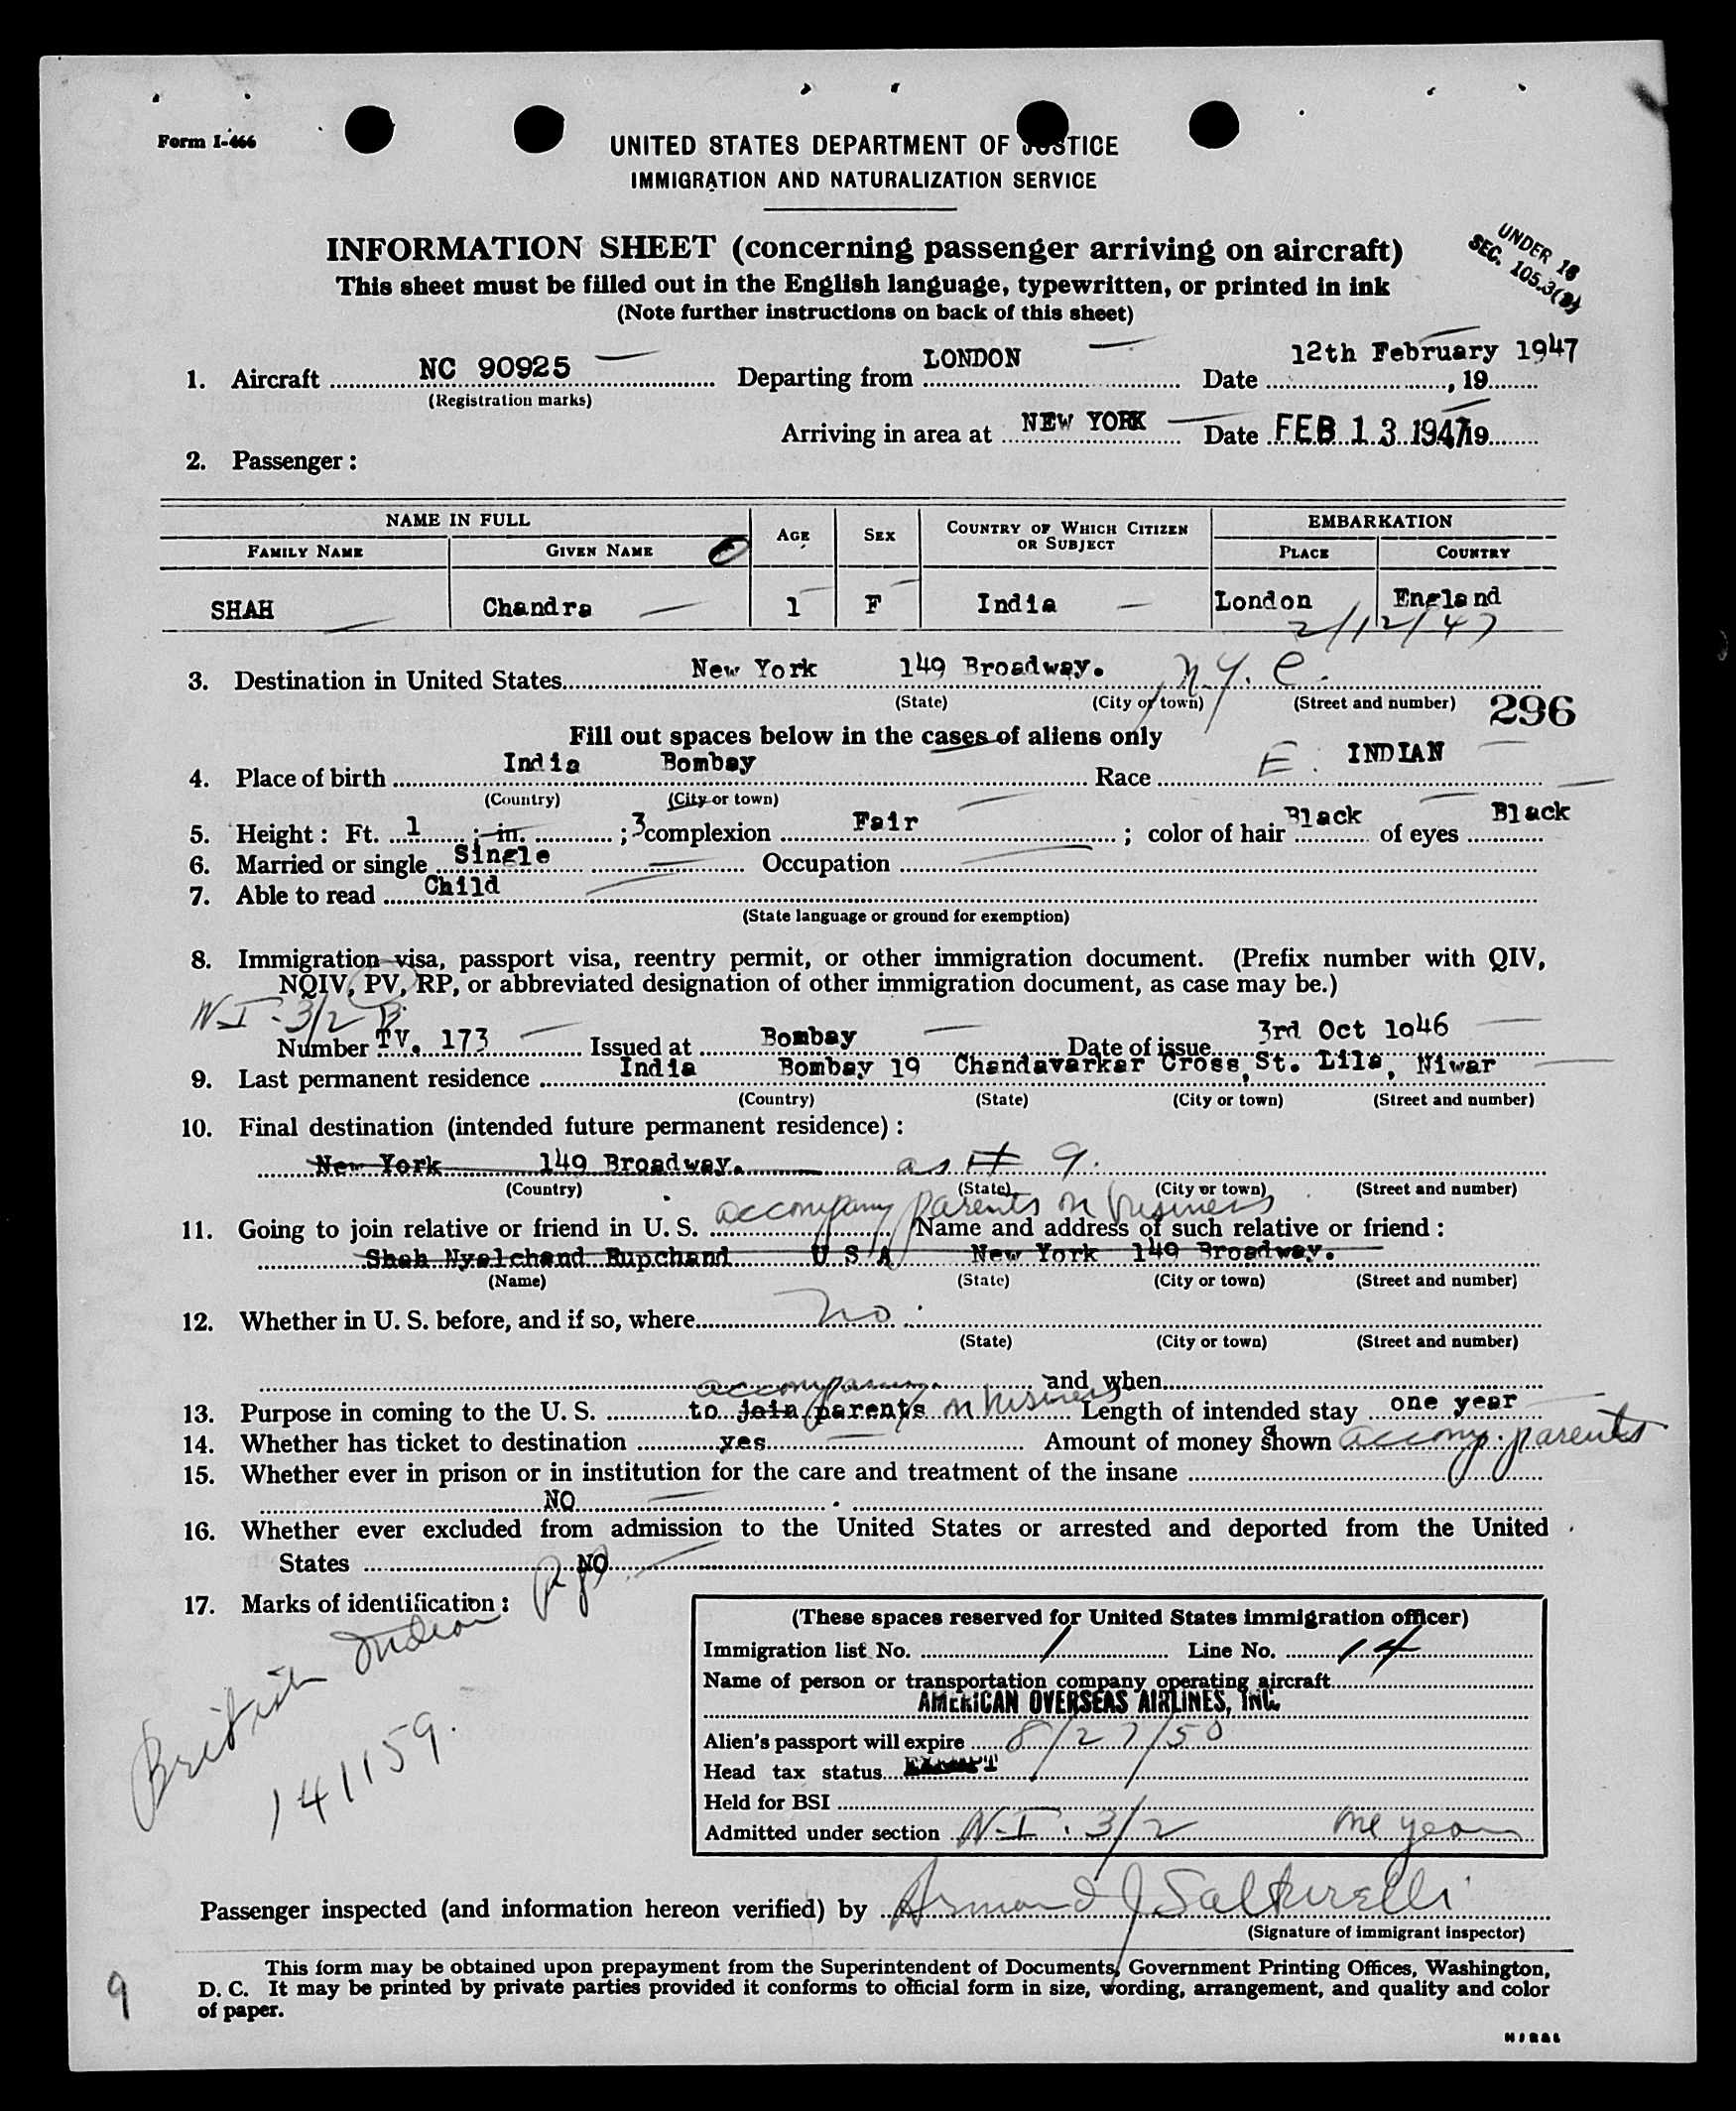 Form I-466
UNITED STATES DEPARTMENT OF JUSTICE
IMMIGRATION AND NATURALIZATION SERVICE
INFORMATION SHEET (concerning passenger arriving on aircraft)
UNDER 16
SEC. 105.3(a)
This sheet must be filled out in the English language, typewritten, or printed in ink
(Note further instructions on back of this sheet)
1. Aircraft NC 90925 Departing from LONDON Date 12th February 1947, 19
(Registration marks)
Arriving in area at NEW YORK Date FEB 13 1947 19
2. Passenger:
NAME IN FULL AGE SEX COUNTRY OF WHICH CITIZEN OR SUBJECT EMBARKATION
FAMILY NAME GIVEN NAME PLACE COUNTRY
SHAH Chandra 1 F India London England
2/12/47
3. Destination in United States New York 149 Broadway. N.Y.C.
(State) (City or town) (Street and number)
296
Fill out spaces below in the cases of aliens only
4. Place of birth India Bombay Race E. INDIAN
(Country) (City or town)
5. Height: Ft. 1 ; in. ; 3 complexion Fair ; color of hair Black of eyes Black
6. Married or single Single Occupation
7. Able to read Child
(State language or ground for exemption)
8. Immigration visa, passport visa, reentry permit, or other immigration document. (Prefix number with QIV,
NQIV, PV, RP, or abbreviated designation of other immigration document, as case may be.)
N-I-3/2 B
Number TV. 173 Issued at Bombay Date of issue 3rd Oct 1o46
9. Last permanent residence India Bombay 19 Chandavarkar Cross, St. Lila, Niwar
(Country) (State) (City or town) (Street and number)
10. Final destination (intended future permanent residence):
New York 149 Broadway. as # 9.
(Country) (State) (City or town) (Street and number)
11. Going to join relative or friend in U. S. accompany parents on business Name and address of such relative or friend:
Shah Nyalchand Rupchand U S A New York 149 Broadway.
(Name) (State) (City or town) (Street and number)
12. Whether in U. S. before, and if so, where No.
(State) (City or town) (Street and number)
and when
accompany
13. Purpose in coming to the U. S. to join parents on business Length of intended stay one year
14. Whether has ticket to destination yes Amount of money shown accomp. parents
15. Whether ever in prison or in institution for the care and treatment of the insane
NO
16. Whether ever excluded from admission to the United States or arrested and deported from the United
States NO
17. Marks of identification:
British Indian PP
141159.
(These spaces reserved for United States immigration officer)
Immigration list No. 1 Line No. 14
Name of person or transportation company operating aircraft
AMERICAN OVERSEAS AIRLINES, INC.
Alien's passport will expire 8/27/50
Head tax status EXEMPT
Held for BSI
Admitted under section N-I. 3/2 one year
Passenger inspected (and information hereon verified) by Armand J Salturelli
(Signature of immigrant inspector)
This form may be obtained upon prepayment from the Superintendent of Documents, Government Printing Offices, Washington,
D. C. It may be printed by private parties provided it conforms to official form in size, wording, arrangement, and quality and color
of paper.
9